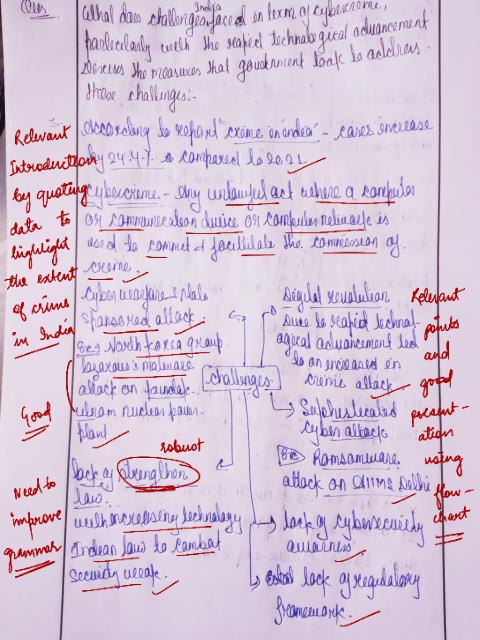 Ques
What does challenges India faced in term of cybercrime,
particularly with the rapid technological advancement
Discuss the measures that government took to address
these challenges:-
According to report "crime in india" - cases increase
by 24.4% as compared to 2021.
Cybercrime - Any unlawful act where a computer
or communication device or computer network is
used to commit & facilitate the commission of
crime.
Relevant
Introduction
by quoting
data to
highlight
the extent
of crime
in India
Cyber warfare & state
sponsored attack.
Ex:- North Korea group
lazarous's malware
attack on
nuclear power
plant
Good
robust
lack of strengthen
law.
with increasing technology
Indian law to combat
security weak
Need to
improve
grammar
Challenges
Digital revolution
Due to rapid technol-
ogical advancement led
to an increased in
crime attack
Sophisticated
cyber attack
Ex:- Ramsomware
attack on AIIMS Delhi
lack of cybersecurity
awareness
lack of regulatory
framework.
Relevant
points
and
good
present-
ation
using
flow-
chart